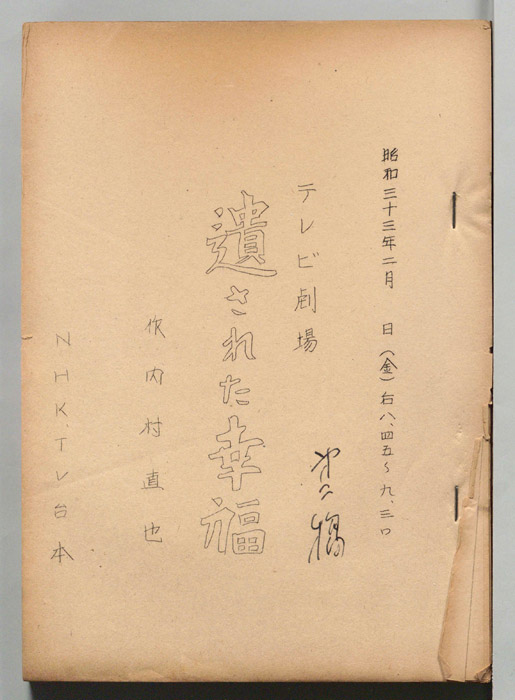 昭和三十三年二月　日(金)后八、四五〜九、三〇
テレビ劇場
遺された幸福
作 内村直也
NHK.TV台本